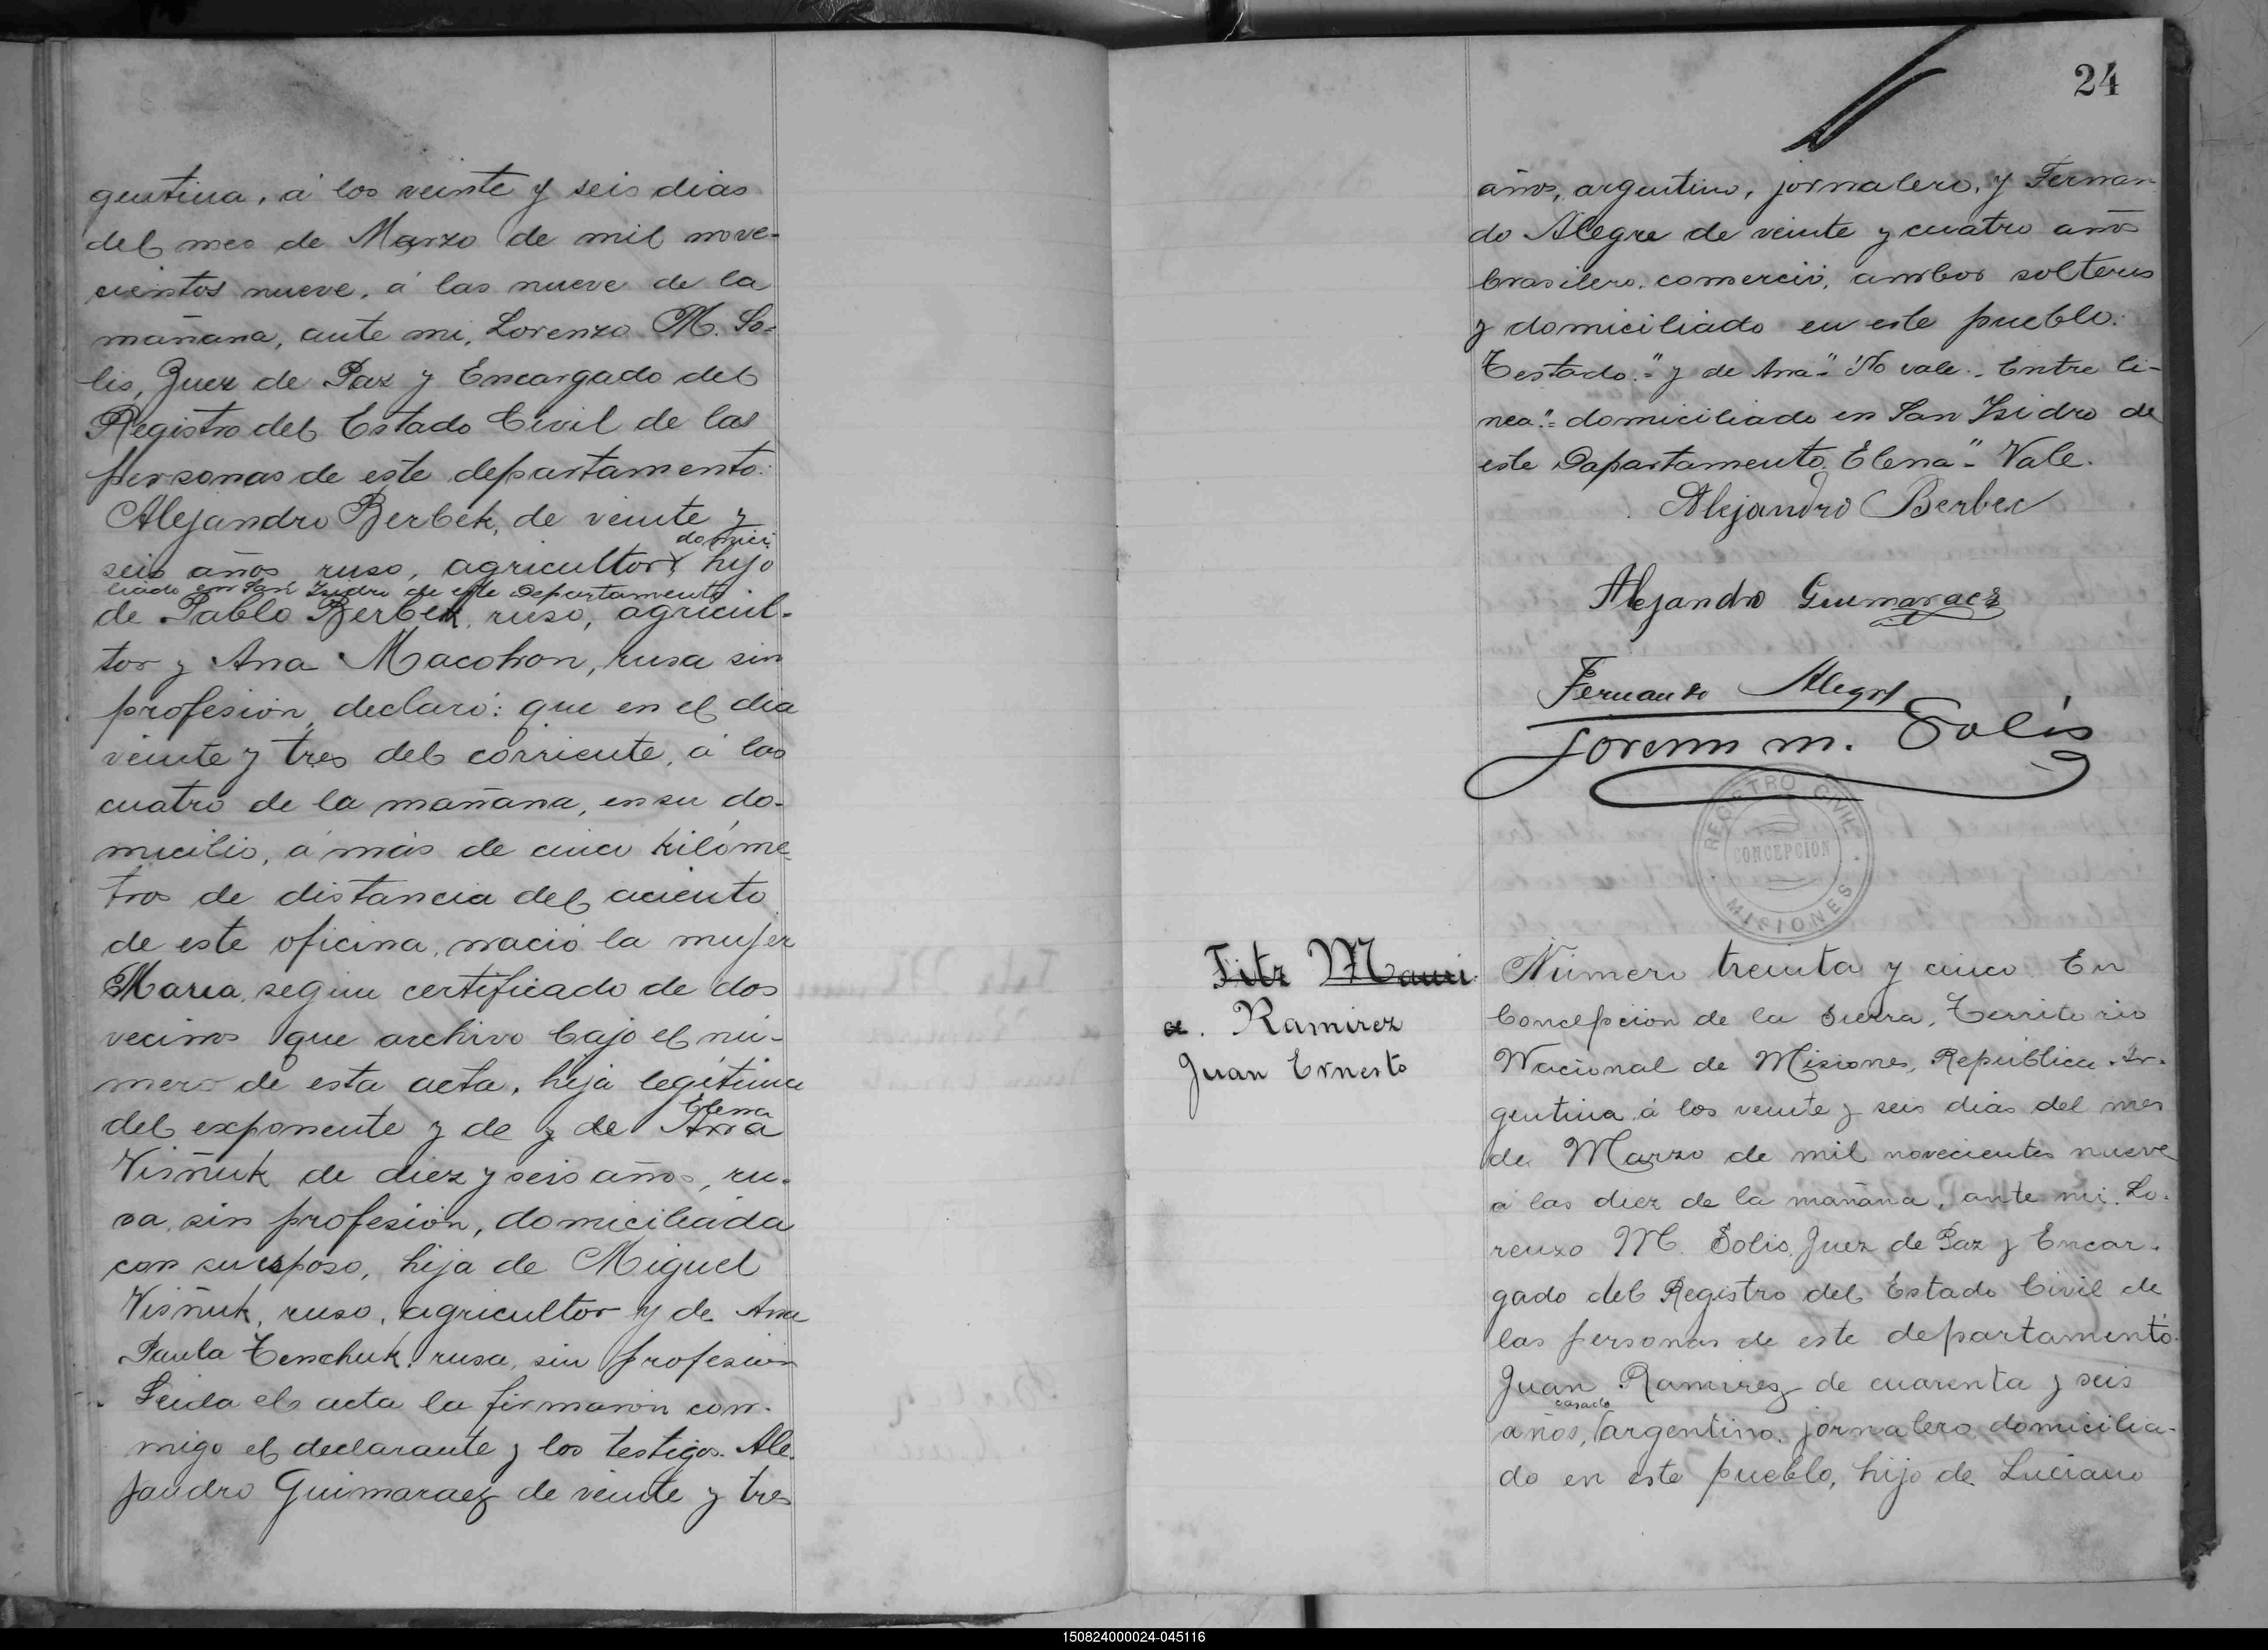 gentina, á los veinte y seis dias
del mes de Marzo de mil nove-
cientos nueve, á las nueve de la
mañana, ante mi, Lorenzo M. So-
lis, Juez de Paz y Encargado del
Registro del Estado Civil de las
personas de este departamento:
Alejandro Berbek, de veinte y
domici
seis años ruso, agricultor, hijo
liado en San Isidro de este Departamento
de Pablo Berbek, ruso, agricul-
tor y Ana Macohon, rusa sin
profesion, declaró: que en el dia
veinte y tres del corriente, á las
cuatro de la mañana, en su do-
micilio, á más de cinco kilóme-
tros de distancia del aciento
de este oficina, nació la mujer
Maria, segun certificado de dos
vecinos que archivo bajo el nú-
mero de esta acta, hija legitima
Elena
del exponente y de y de Ana
Visñuk de diez y seis años, ru-
sa, sin profesión, domiciliada
con su esposo, hija de Miguel
Visñuk, ruso, agricultor y de Ana
Paula Tenchuk, rusa, sin profesion
Leida el acta la firmaron con-
migo el declarante y los testigos. Ale-
jandro Guimaraez de veinte y tres
24
años, argentino, jornalero, y Fernan
do Alegre de veinte y cuatro años
brasilero, comercio, ambos solteros
y domiciliado en este pueblo.
Testado:" y de Ana" No vale. Entre li-
nea:" domiciliado en San Isidro de
este Dapartamento. Elena" Vale.
Alejandro Berbec
Alejandro Guimaraez
Fernando Alegre
Lorenzo M. Solis
REGISTRO CIVIL
CONCEPCION
MISIONES
Fitz Mauri
a. Ramirez
Juan Ernesto
Número treinta y cinco. En
Concepcion de la Sierra, Territorio
Nacional de Misiones, República Ar-
gentina á los veinte y seis dias del mes
de Marzo de mil novecientos nueve
á las diez de la mañana, ante mi, Lo-
renzo M. Solis, Juez de Paz y Encar-
gado del Registro del Estado Civil de
las personas de este departamento.
Juan Ramirez de cuarenta y seis
casado
años, argentino, jornalero, domicilia-
do en este pueblo, hijo de Luciano
150824000024-045116